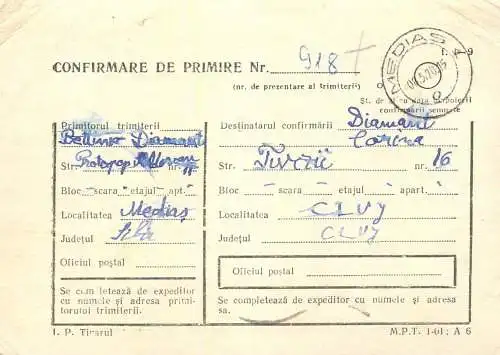 CONFIRMARE DE PRIMIRE Nr. 918
(nr. de prezentare al trimiterii)
MEDIAS 4
St. de zi cu data înapoierii
confirmării semnate
Primitorul trimiterii
Diamant
Str. nr.
Bloc scara etajul apt.
Localitatea Mediaș
Județul Sibiu
Oficiul poștal
Se completează de expeditor
cu numele și adresa primi-
torului trimiterii.
Destinatarul confirmării Diamant
Corina
Str. Turzii nr. 16
Bloc scara etajul apart.
Localitatea CLUJ
Județul CLUJ
Oficiul poștal
Se completează de expeditor cu numele și adresa
sa.
I. P. Tiparul
M.P.T. 1-01; A 6